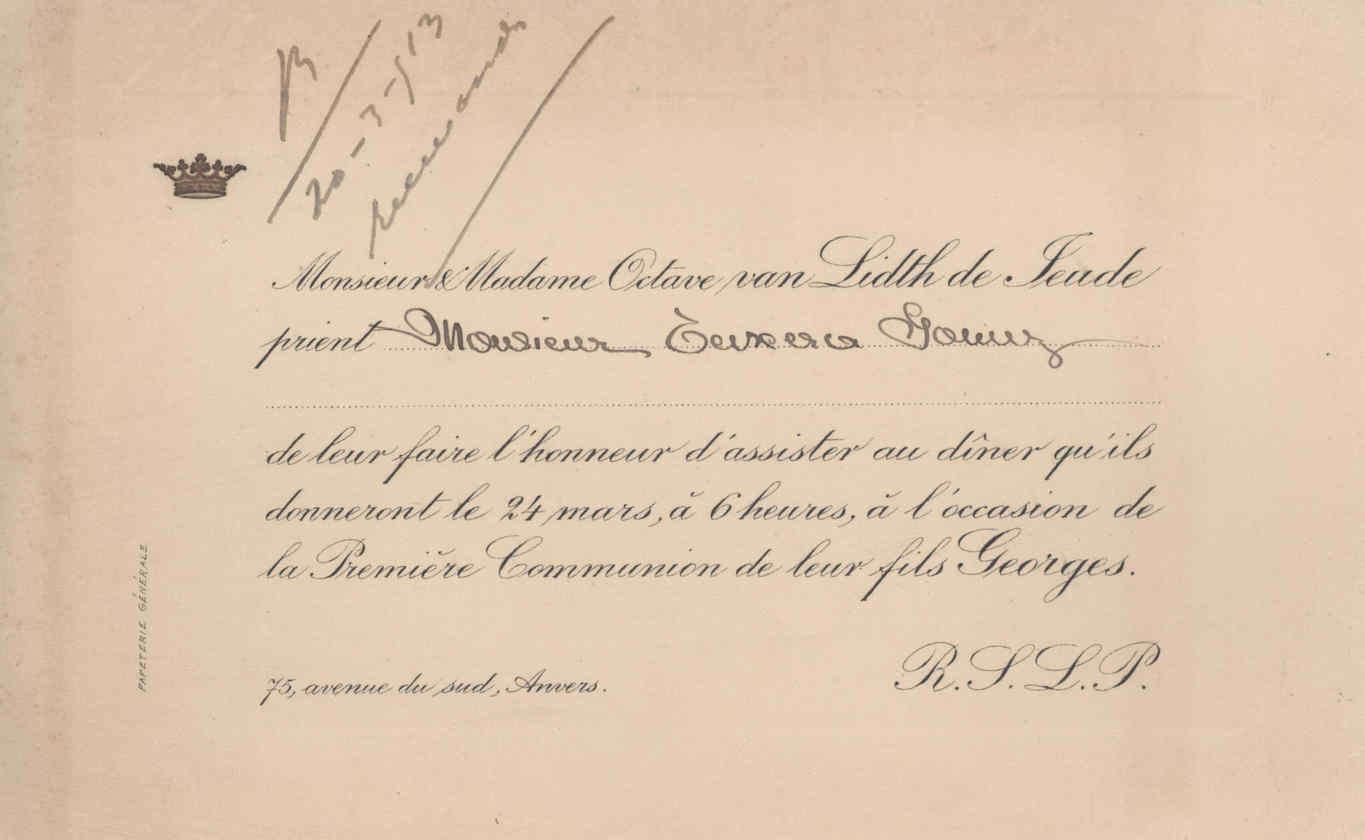 R/
20-3-913
Monsieur & Madame Octave van Lidth de Jeude
prient Monsieur Teixera Gomez
de leur faire l'honneur d'assister au dîner qu'ils
donneront le 24 mars, à 6 heures, à l'occasion de
la Première Communion de leur fils Georges.
75, avenue du sud, Anvers.
R.S.L.P.
PAPETERIE GÉNÉRALE